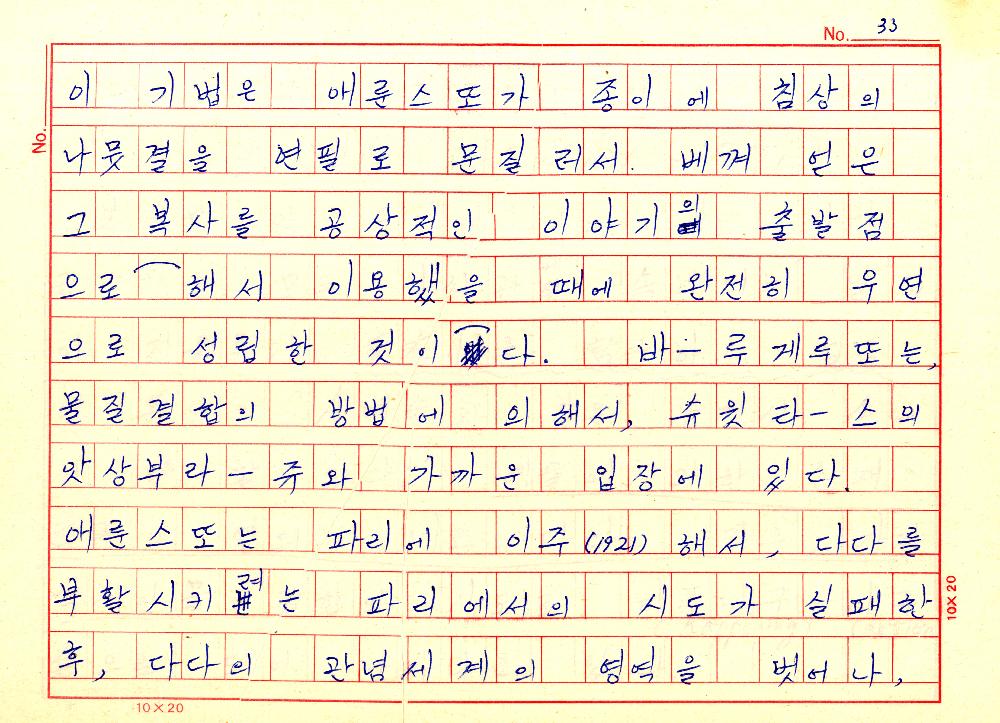 No. 33
No.
이 기법은 애룬스또가 종이에 침상의
나뭇결을 연필로 문질러서. 베껴 얻은
그 복사를 공상적인 이야기의 출발점
으로 해서 이용했을 때에 완전히 우연
으로 성립한 것이다. 바ー루게루또는,
물질결합의 방법에 의해서, 슈윗타ー스의
앗상부라ー쥬와 가까운 입장에 있다.
애룬스또는 파리에 이주(1921)해서, 다다를
부활시키려는 파리에서의 시도가 실패한
후, 다다의 관념세계의 영역을 벗어나,
10×20
10×20